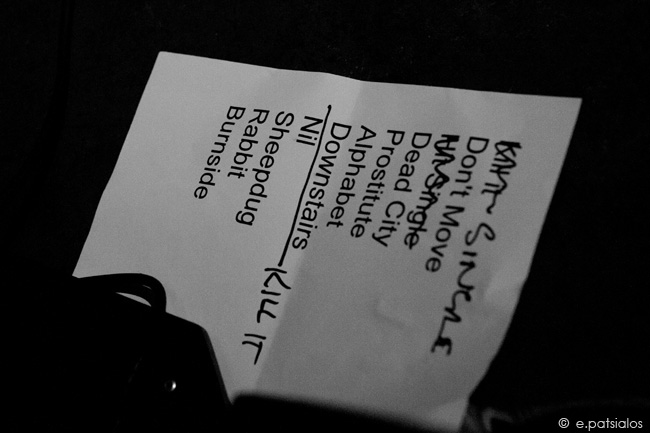 - SINGLE
Don't Move
single
Dead City
Prostitute
Alphabet
Downstairs
Nil - KILL IT
Sheepdug
Rabbit
Burnside
© e.patsialos